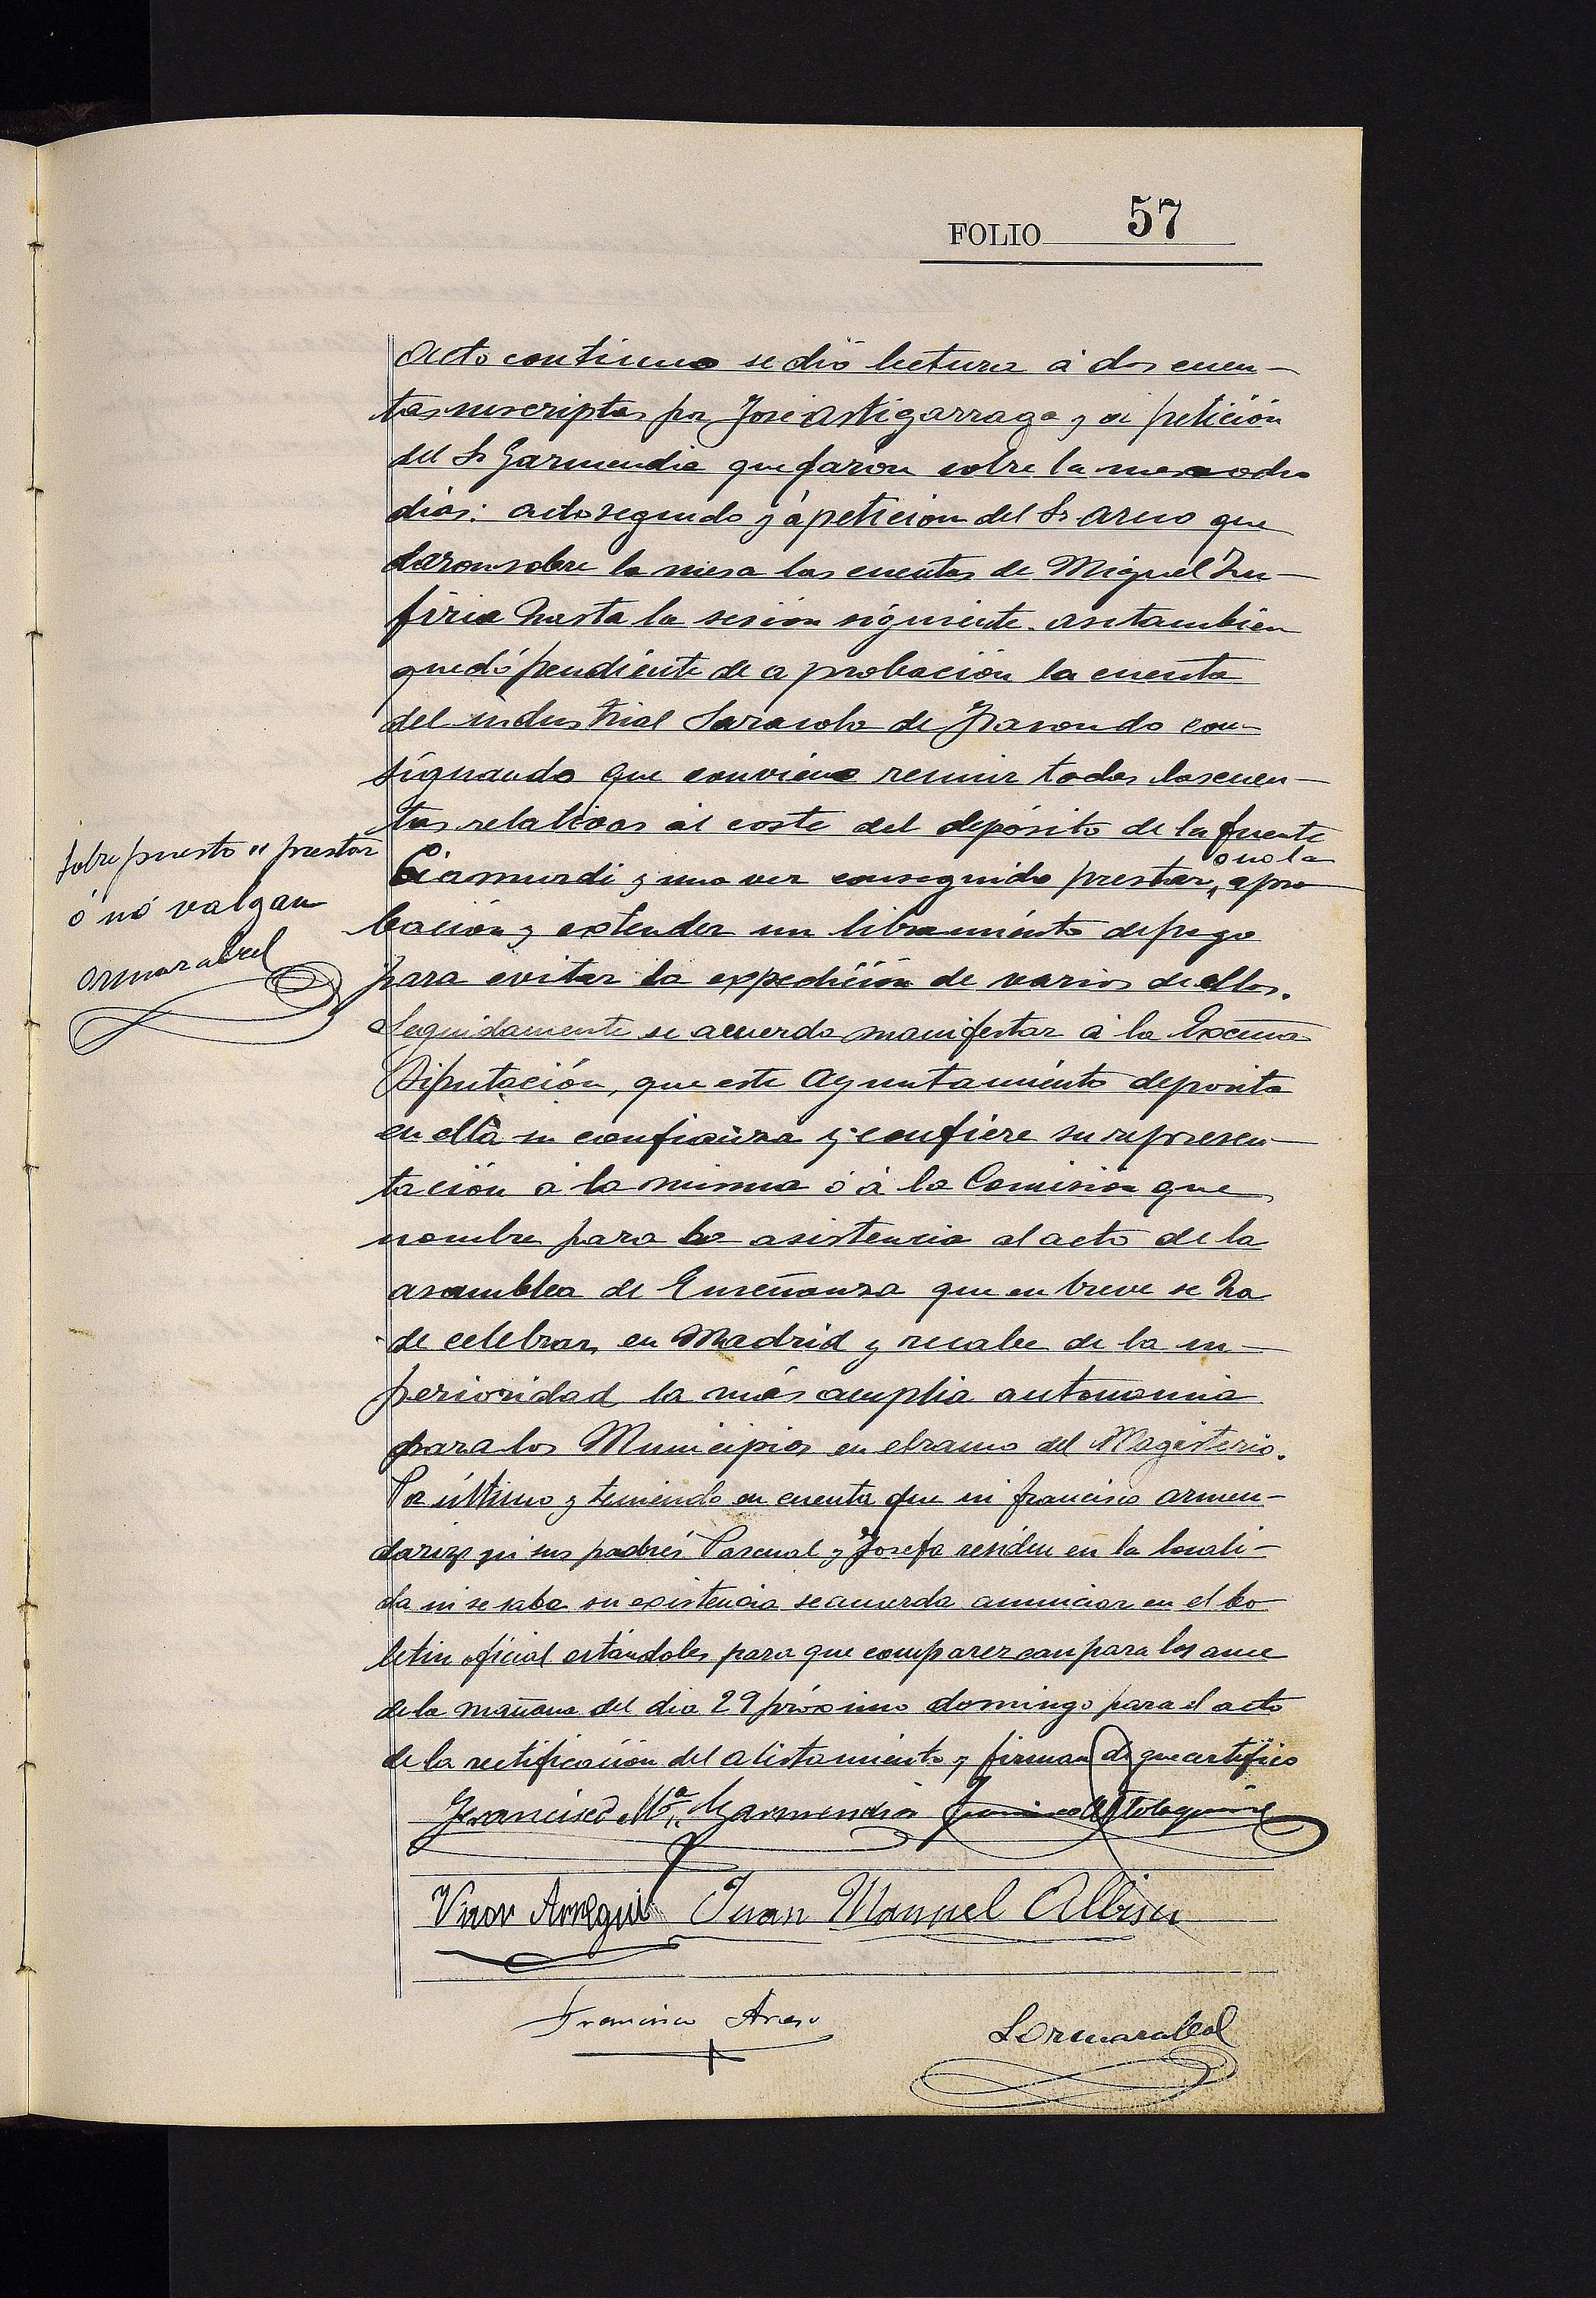 FOLIO 57
Acto continuo se dió lectura á dos cuen-
tas suscriptas por José Astigarraga y á petición
del Sr Garmendia quedaron sobre la mesa ocho
dias: acto seguido y á petición del Sr Areso que
daron sobre la mesa las cuentas de Miguel Zu-
firia hasta la sesión siguiente. asi tambien
quedó pendiente de aprobación la cuenta
del industrial Sarasola de con-
signando que conviene reunir todas las cuen-
tas relativas al coste del depósito de la fuente
y una vez conseguido prestar ó no la apro
bación y extender un libramiento de pago
para evitar la expedición de varios de ellos.
Seguidamente se acuerda manifestar á la Excma
Diputación, que este Ayuntamiento deposita
en ella su confianza y confiere su represen-
tación á la misma ó á la Comisión que
nombre para la asistencia al acto de la
asamblea de Enseñanza que en breve se ha
de celebrar en Madrid y recabe de la su-
perioridad la más amplia autonomia
para los Municipios en el ramo del Magisterio.
Por último y teniendo en cuenta que ni francisco armen-
dariz ni sus padres Pascual y Josefa residen en la locali-
da ni se sabe su existencia se acuerda anunciar en el bo
letin oficial citándoles para que comparezcan para las once
de la mañana del dia 29 próximo domingo para el acto
de la rectificación del alistamiento y firman de que certifico
Sobre puesto "prestar
ó nó valgan
Ormazabal
Francisco Mª Garmendia Otolaguirre
Victor Arregui Juan Manuel Albisu
Francisco Areso
L Ormazabal